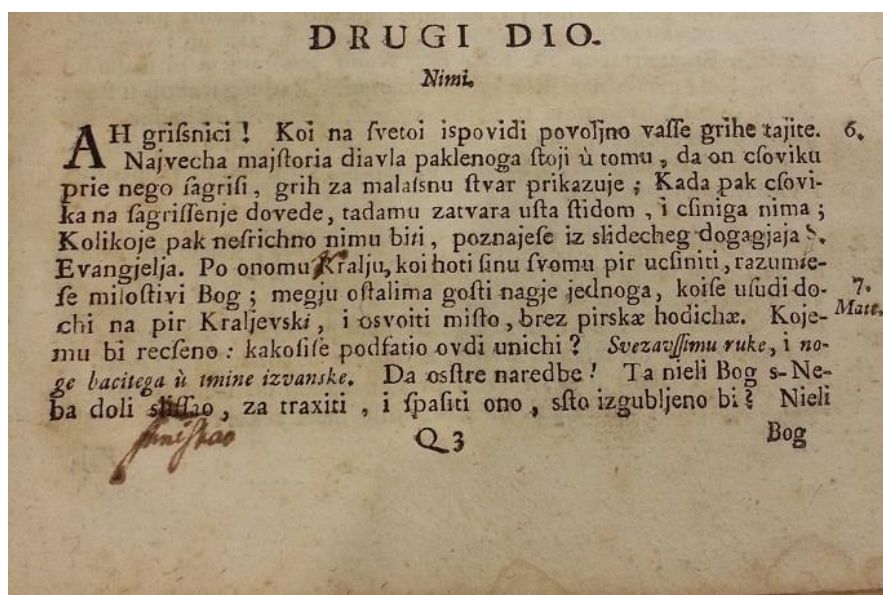 DRUGI DIO.
Nimi.
AH griſsnici ! Koi na ſvetoi ispovidi povoljno vaſſe grihe tajite. 6.
Najvecha majſtoria diavla paklenoga ſtoji ù tomu, da on cſoviku
prie nego ſagriſi, grih za malaſsnu ſtvar prikazuje ; Kada pak cſovi-
ka na ſagriſſenje dovede, tadamu zatvara uſta ſtidom, i cſiniga nima ;
Kolikoje pak neſrichno nimu biti, poznajeſe iz slidecheg dogagjaja S.
Evangjelja. Po onomu Kralju, koi hoti ſinu ſvomu pir ucſiniti, razumie-
ſe miloſtivi Bog ; megju oſtalima goſti nagje jednoga, koiſe uſudi do- 7.
chi na pir Kraljevski, i osvoiti miſto, brez pirskæ hodichæ. Koje- Mate.
mu bi recſeno : kakoſiſe podfatio ovdi unichi ? Svezavſſimu ruke, i no-
ge bacitega ù tmine izvanske. Da osſtre naredbe ! Ta nieli Bog s-Ne-
ba doli sliſſao, za traxiti, i ſpaſiti ono, sſto izgubljeno bi ? Nieli
Q 3 Bog